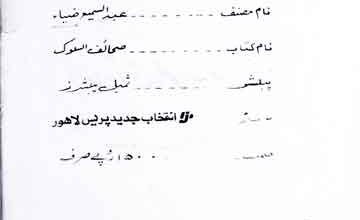 نام مصنف ........ عبدالسمیع ضیاء
نام کتاب ........ صحائف السلوک
پبلشر ........ پبلشرز
انتخاب جدید پریس لاہور
۱۵۰ روپے صرف